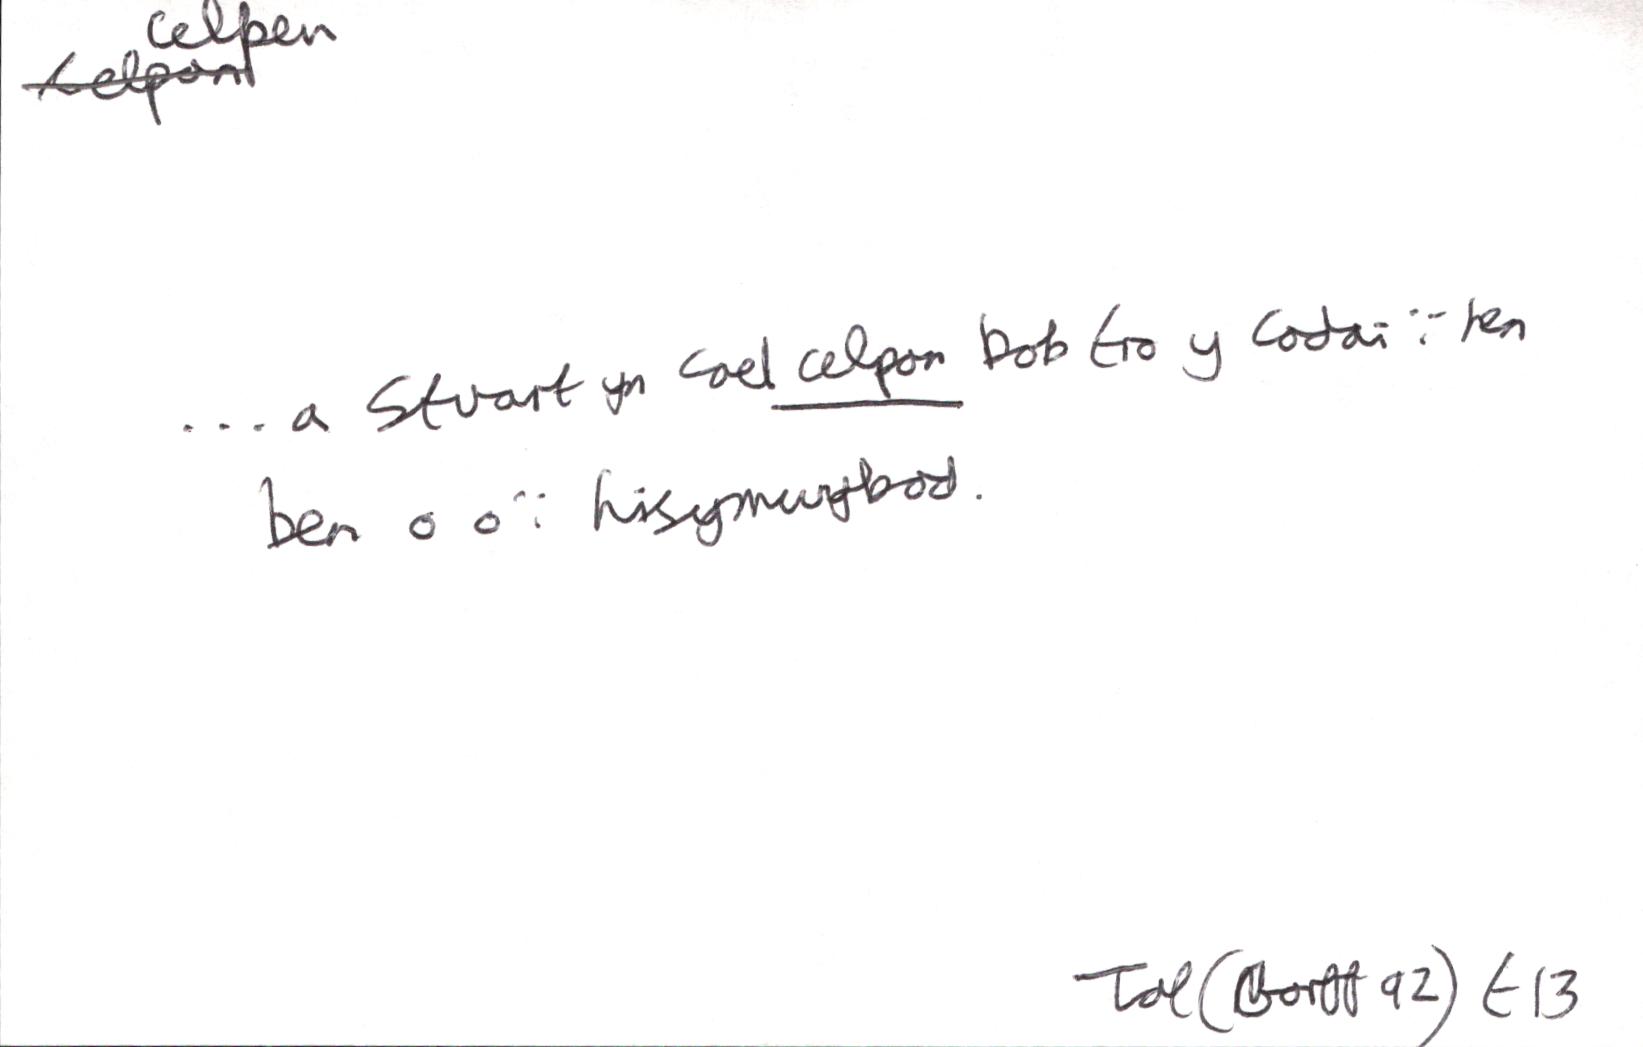 celpen
celpan
...a Stuart yn cael celpan bob tro y codai i'r pen
ben o o'i hisymwybod.
Tol (Gorff 92) t 13